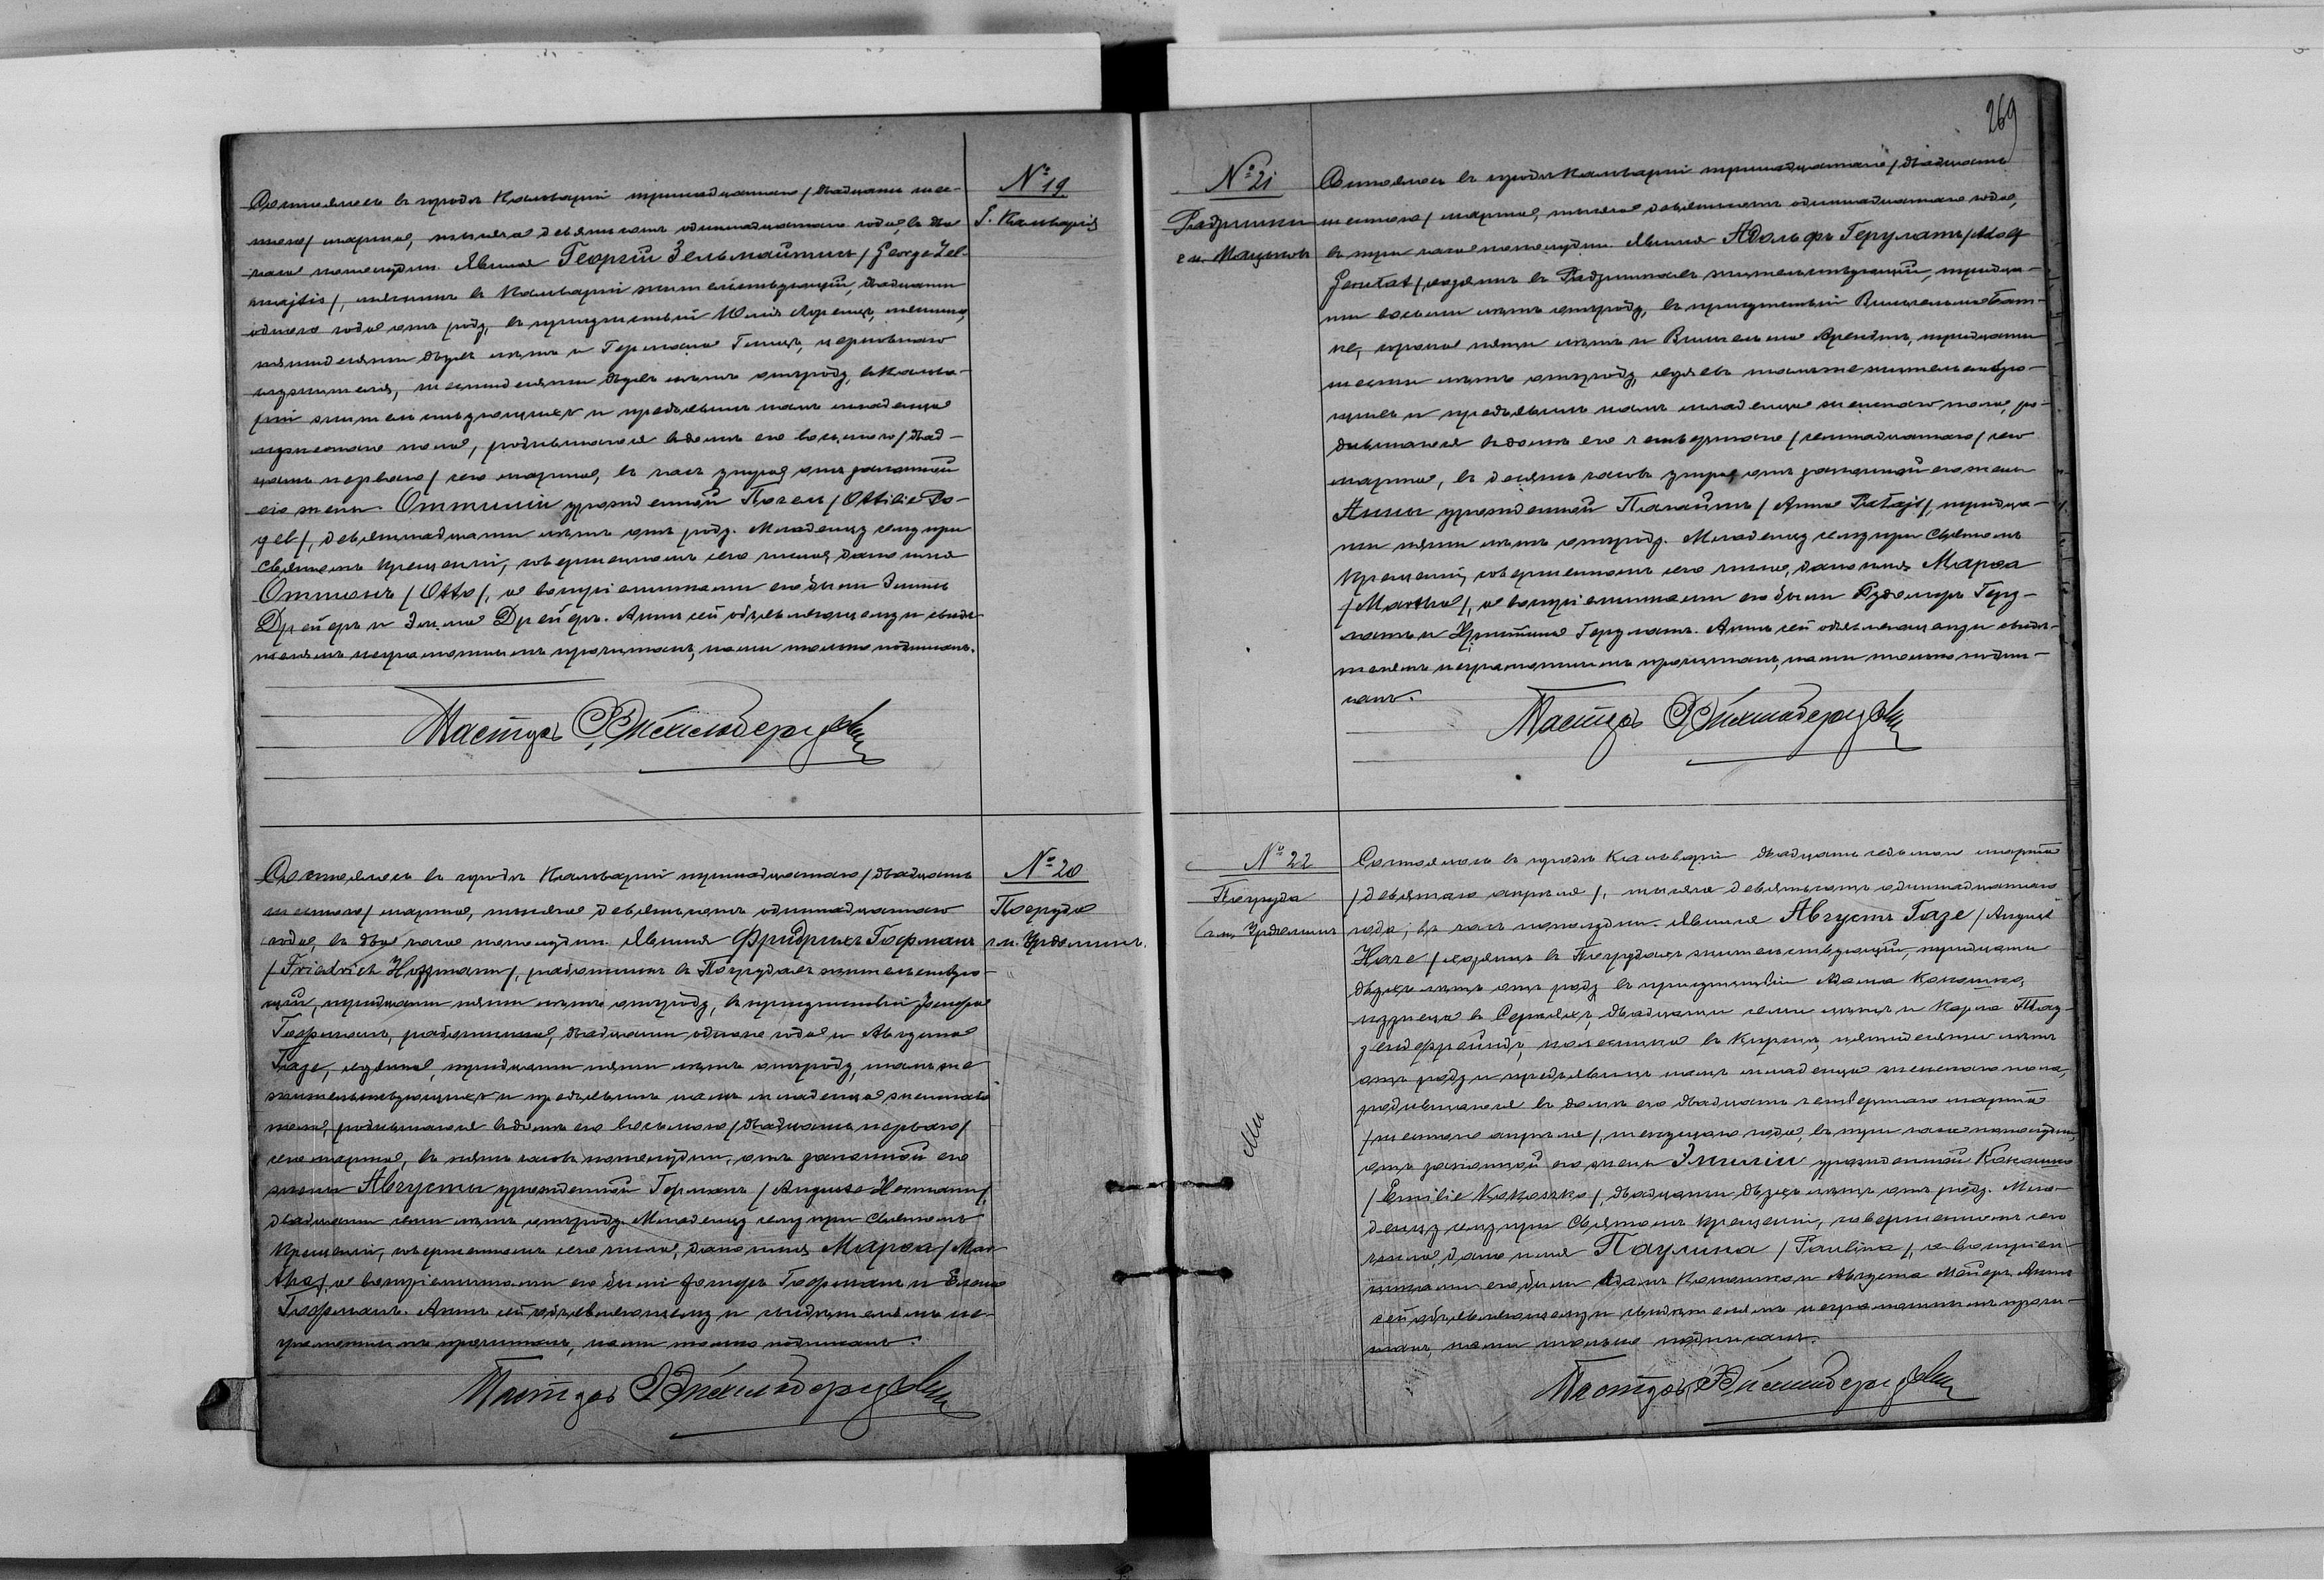 № 19
Г. Кальварія
Состоялось въ городѣ Кальваріи тринадцатаго /двадцать шес-
таго/ марта, тысяча девятьсотъ одиннадцатаго года, въ два
часа пополудни. Явился Георгій Зельмайтисъ /George Zel-
majtis/, въ Кальваріи жительствующій, двадцати
одного года отъ роду, въ присутствіи Юлія Лоренцъ,
пятидесяти двухъ лѣтъ и Германа церковнаго
служителя, шестидесяти двухъ лѣтъ отъ роду, въ Кальва-
ріи жительствующихъ и предъявилъ намъ младенца
мужескаго пола, родившагося въ домѣ его восьмого /двад-
цать перваго/ сего марта, въ часъ утра, отъ законной
его жены Оттиліи урожденной /Ottilie Po-
девятнадцати лѣтъ отъ роду. Младенцу сему при
Святомъ Крещеніи, совершенномъ сего числа, дано имя
Оттонъ /Otto/, а воспріемниками его были Эмиль
Дрейеръ и Эмма Дрейеръ. Актъ сей объявляющему и свидѣ-
телямъ неграмотнымъ прочитанъ, нами только подписанъ.
Пасторъ
№ 20
Погруда
г. м. Урдоминъ.
Состоялось въ городѣ Кальваріи тринадцатаго /двадцать
шестого/ марта, тысяча девятьсотъ одиннадцатаго
года, въ два часа пополудни. Явился Фридрихъ Гофманъ
/Friedrich Hoffmann/, работникъ въ Погрудахъ жительствую-
щій, тридцати пяти лѣтъ отъ роду, въ присутствіи
Гофманъ, работника, двадцати одного года и Августа
Газе, тридцати пяти лѣтъ отъ роду, тамъ же
жительствующихъ и предъявилъ намъ младенца женскаго
пола, родившагося въ домѣ его восьмого /двадцать перваго/
сего марта, въ пять часовъ пополудни, отъ законной его
жены Августы урожденной Германъ /Auguste Hermann/,
двадцати семи лѣтъ отъ роду. Младенцу сему при Святомъ
Крещеніи, совершенномъ сего числа, дано имя Марѳа /Mar-
tha/, а воспріемниками его были Гофманъ и Елена
Гофманъ. Актъ сей объявляющему и свидѣтелямъ не-
грамотнымъ прочитанъ, нами только подписанъ.
Пасторъ
269
№ 21
Радзишки
г. м.
Состоялось въ городѣ Кальваріи тринадцатаго /двадцать
шестого/ марта, тысяча девятьсотъ одиннадцатаго года,
въ три часа пополудни. Явился Адольфъ Герулатъ /Adolf
Gerulat/, въ Радзишкахъ жительствующій, тридца-
ти восьми лѣтъ отъ роду, въ присутствіи Вильгельма
сорока пяти лѣтъ и Вильгельма Арендтъ, тридцати
шести лѣтъ отъ роду, тамъ же жительствую-
щихъ и предъявилъ намъ младенца женскаго пола, ро-
дившагося въ домѣ его четвертаго /семнадцатаго/ сего
марта, въ десять часовъ утра, отъ законной его жены
Анны урожденной /Anna
ти пяти лѣтъ отъ роду. Младенцу сему при Святомъ
Крещеніи, совершенномъ сего числа, дано имя Марѳа
/Martha/, а воспріемниками его были Рудольфъ Геру-
латъ и Герулатъ. Актъ сей объявляющему и свидѣ-
телямъ неграмотнымъ прочитанъ, нами только подпи-
санъ.
Пасторъ
№ 22
Погруда
г. м. Урдоминъ
Состоялось въ городѣ Кальваріи двадцать седьмого марта
/девятаго апрѣля/, тысяча девятьсотъ одиннадцатаго
года, въ часъ пополудни. Явился Августъ Газе /August
Haze/ въ Погрудахъ жительствующій, тридцати
двухъ лѣтъ отъ роду въ присутствіи Адама Кокошко,
кузнеца въ двадцати семи лѣтъ и Карла
пятидесяти лѣтъ
отъ роду и предъявилъ намъ младенца женскаго пола,
родившагося въ домѣ его двадцать четвертаго марта
/шестого апрѣля/, текущаго года, въ три часа пополудни,
отъ законной его жены Эмиліи урожденной Кокошко
/Emilie Kokoszko/, двадцати двухъ лѣтъ отъ роду. Мла-
денцу сему при Святомъ Крещеніи, совершенномъ сего
числа, дано имя Паулина /Paulina/, а воспріем-
никами его были Адамъ Кокошко и Августа Мейеръ. Актъ
сей объявляющему и свидѣтелямъ неграмотнымъ прочи-
танъ, нами только подписанъ.
Пасторъ